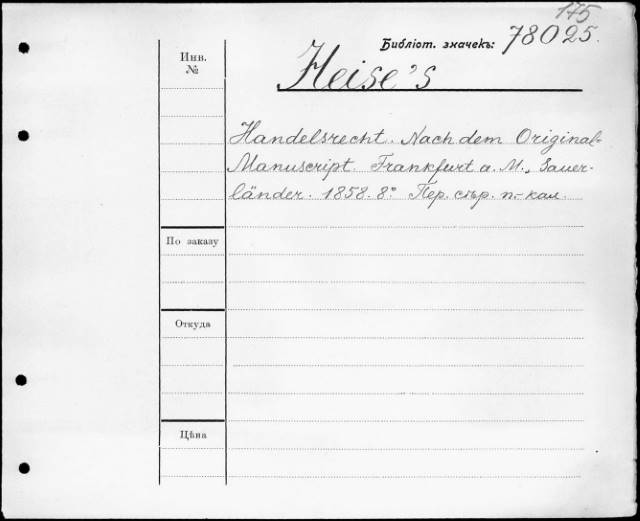 175
Библіот. значекъ: 78025.
Инв.
№
Heise's
Handelsrecht. Nach dem Original-
Manuscript. Frankfurt a. M., Sauer-
länder. 1858. 8° Пер. стър. п.- кал.
По заказу
Откуда
Цѣна